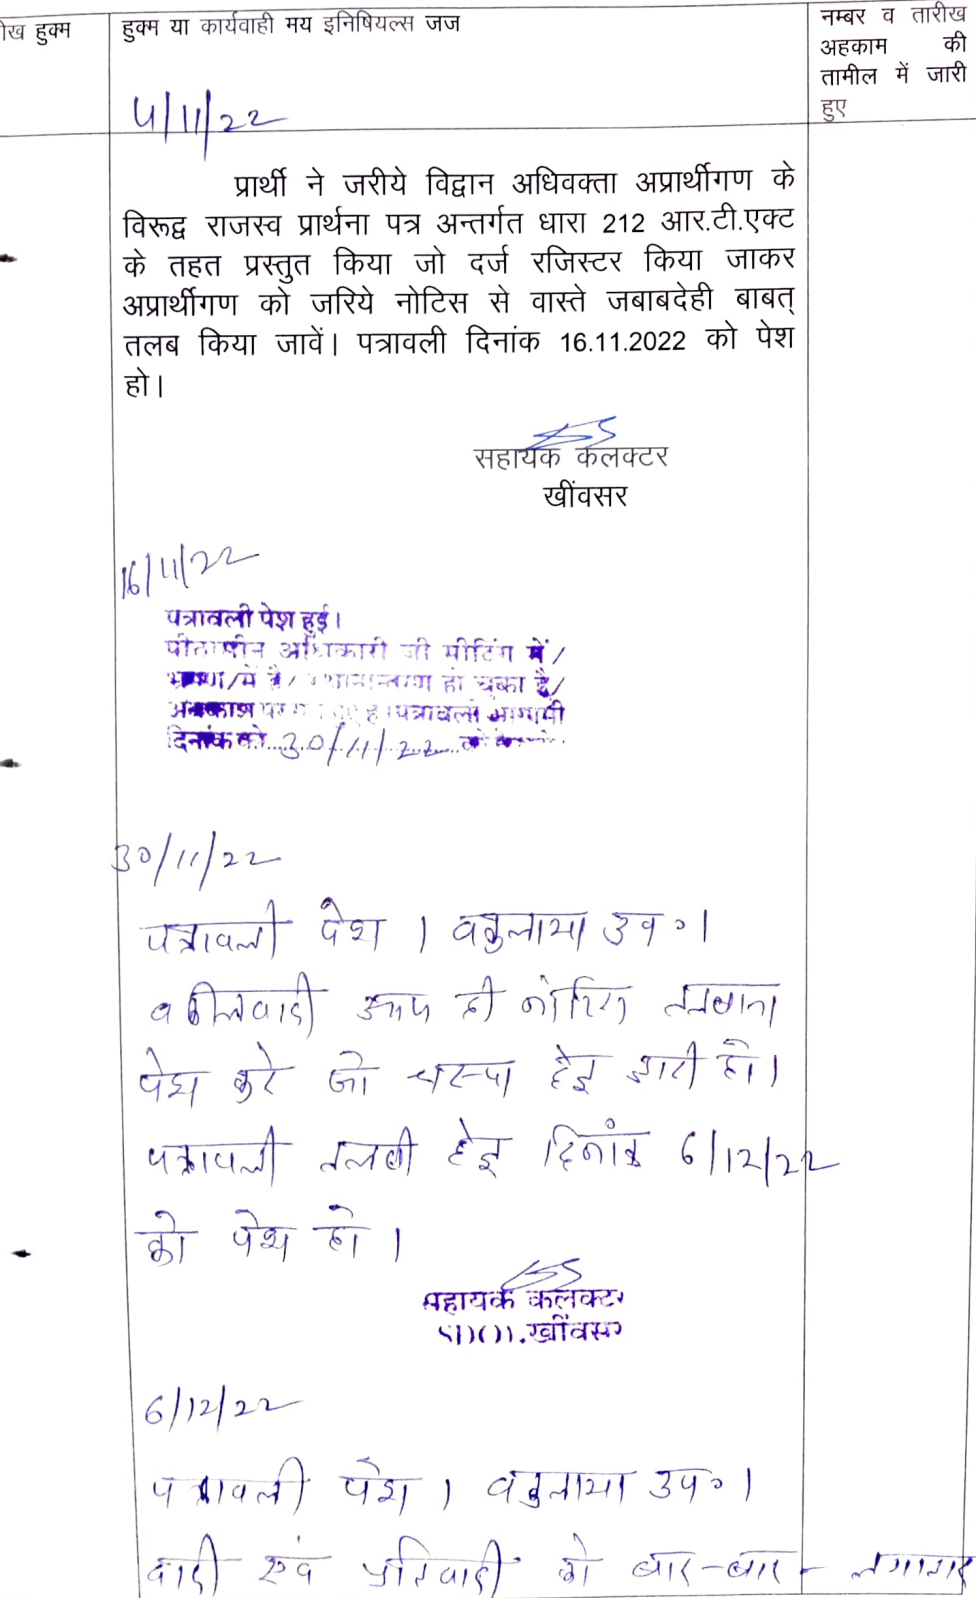 हुक्म
हुक्म या कार्यवाही मय इनिषियल्स जज
नम्बर व तारीख
अहकाम की
तामील में जारी
हुए
4/11/22
प्रार्थी ने जरीये विद्वान अधिवक्ता अप्रार्थीगण के
विरूद्व राजस्व प्रार्थना पत्र अन्तर्गत धारा 212 आर.टी.एक्ट
के तहत प्रस्तुत किया जो दर्ज रजिस्टर किया जाकर
अप्रार्थीगण को जरिये नोटिस से वास्ते जबाबदेही बाबत्
तलब किया जावें। पत्रावली दिनांक 16.11.2022 को पेश
हो।
सहायक कलक्टर
खींवसर
16/11/22
पत्रावली पेश हुई।
अधिकारी जी मीटिंग में/
हो चुका है/
पत्रावली आगामी
दिनांक को 30/11/22
30/11/22
पत्रावली पेश । वकुलाया उप०।
वकीलवादी नोटिस तलबाना
पेश करे जो चस्पा हेतु जारी हो।
पत्रावली तलबी हेतु दिनांक 6/12/22
को पेश हो ।
सहायक कलक्टर
खींवसर
6/12/22
पत्रावली पेश । वकुलाया उप०।
वादी एवं प्रतिवादी को बार-बार- लगातार